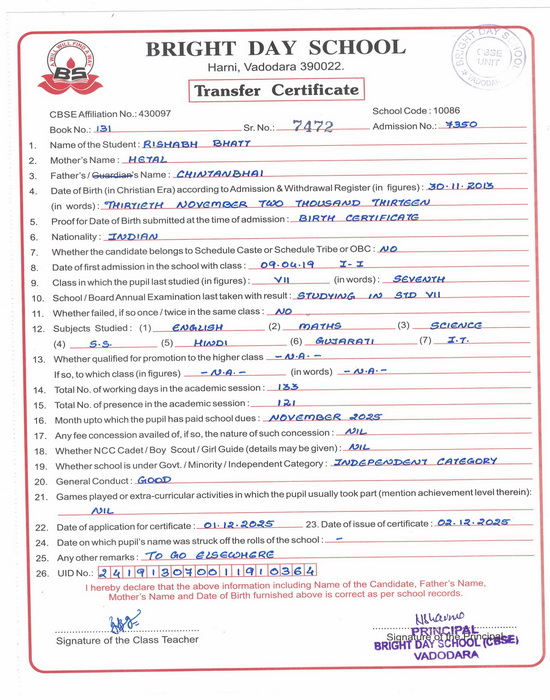 A WILL WILL FIND A WAY
BS
BRIGHT DAY SCHOOL
Harni, Vadodara 390022.
BRIGHT DAY SCHOOL
CBSE
UNIT
VADODARA
Transfer Certificate
CBSE Affiliation No.: 430097 School Code : 10086
Book No.: 131 Sr. No.: 7472 Admission No.: 7350
1. Name of the Student : RISHABH BHATT
2. Mother's Name : HETAL
3. Father's / Guardian's Name : CHINTANBHAI
4. Date of Birth (in Christian Era) according to Admission & Withdrawal Register (in figures) : 30-11-2013
(in words) : THIRTIETH NOVEMBER TWO THOUSAND THIRTEEN
5. Proof for Date of Birth submitted at the time of admission : BIRTH CERTIFICATE
6. Nationality : INDIAN
7. Whether the candidate belongs to Schedule Caste or Schedule Tribe or OBC : NO
8. Date of first admission in the school with class : 09.04.19 I-I
9. Class in which the pupil last studied (in figures) : VII (in words) : SEVENTH
10. School / Board Annual Examination last taken with result : STUDYING IN STD VII
11. Whether failed, if so once / twice in the same class : NO
12. Subjects Studied : (1) ENGLISH (2) MATHS (3) SCIENCE
(4) S.S. (5) HINDI (6) GUJARATI (7) I.T.
13. Whether qualified for promotion to the higher class - N.A. -
If so, to which class (in figures) - N.A. - (in words) - N.A. -
14. Total No. of working days in the academic session : 133
15. Total No. of presence in the academic session : 121
16. Month upto which the pupil has paid school dues : NOVEMBER 2025
17. Any fee concession availed of, if so, the nature of such concession : NIL
18. Whether NCC Cadet / Boy Scout / Girl Guide (details may be given) : NIL
19. Whether school is under Govt. / Minority / Independent Category : INDEPENDENT CATEGORY
20. General Conduct : GOOD
21. Games played or extra-curricular activities in which the pupil usually took part (mention achievement level therein):
NIL
22. Date of application for certificate : 01.12.2025 23. Date of issue of certificate : 02.12.2025
24. Date on which pupil's name was struck off the rolls of the school : -
25. Any other remarks : TO GO ELSEWHERE
26. UID No.: 241913070011910364
I hereby declare that the above information including Name of the Candidate, Father's Name,
Mother's Name and Date of Birth furnished above is correct as per school records.
Signature of the Class Teacher Signature of the Principal
PRINCIPAL
BRIGHT DAY SCHOOL (CBSE)
VADODARA